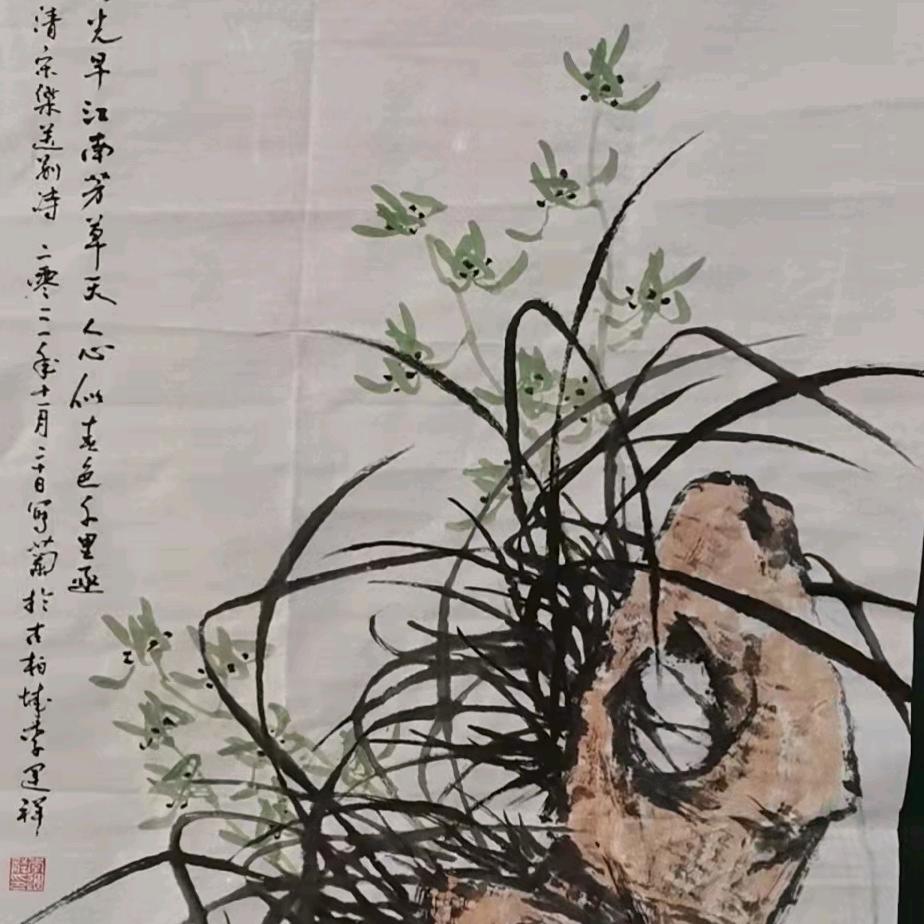 光早江南芳草天人心似春色千里逐
清宋送别诗 二零二一年十一月二十日写蘭於古柏城李運祥